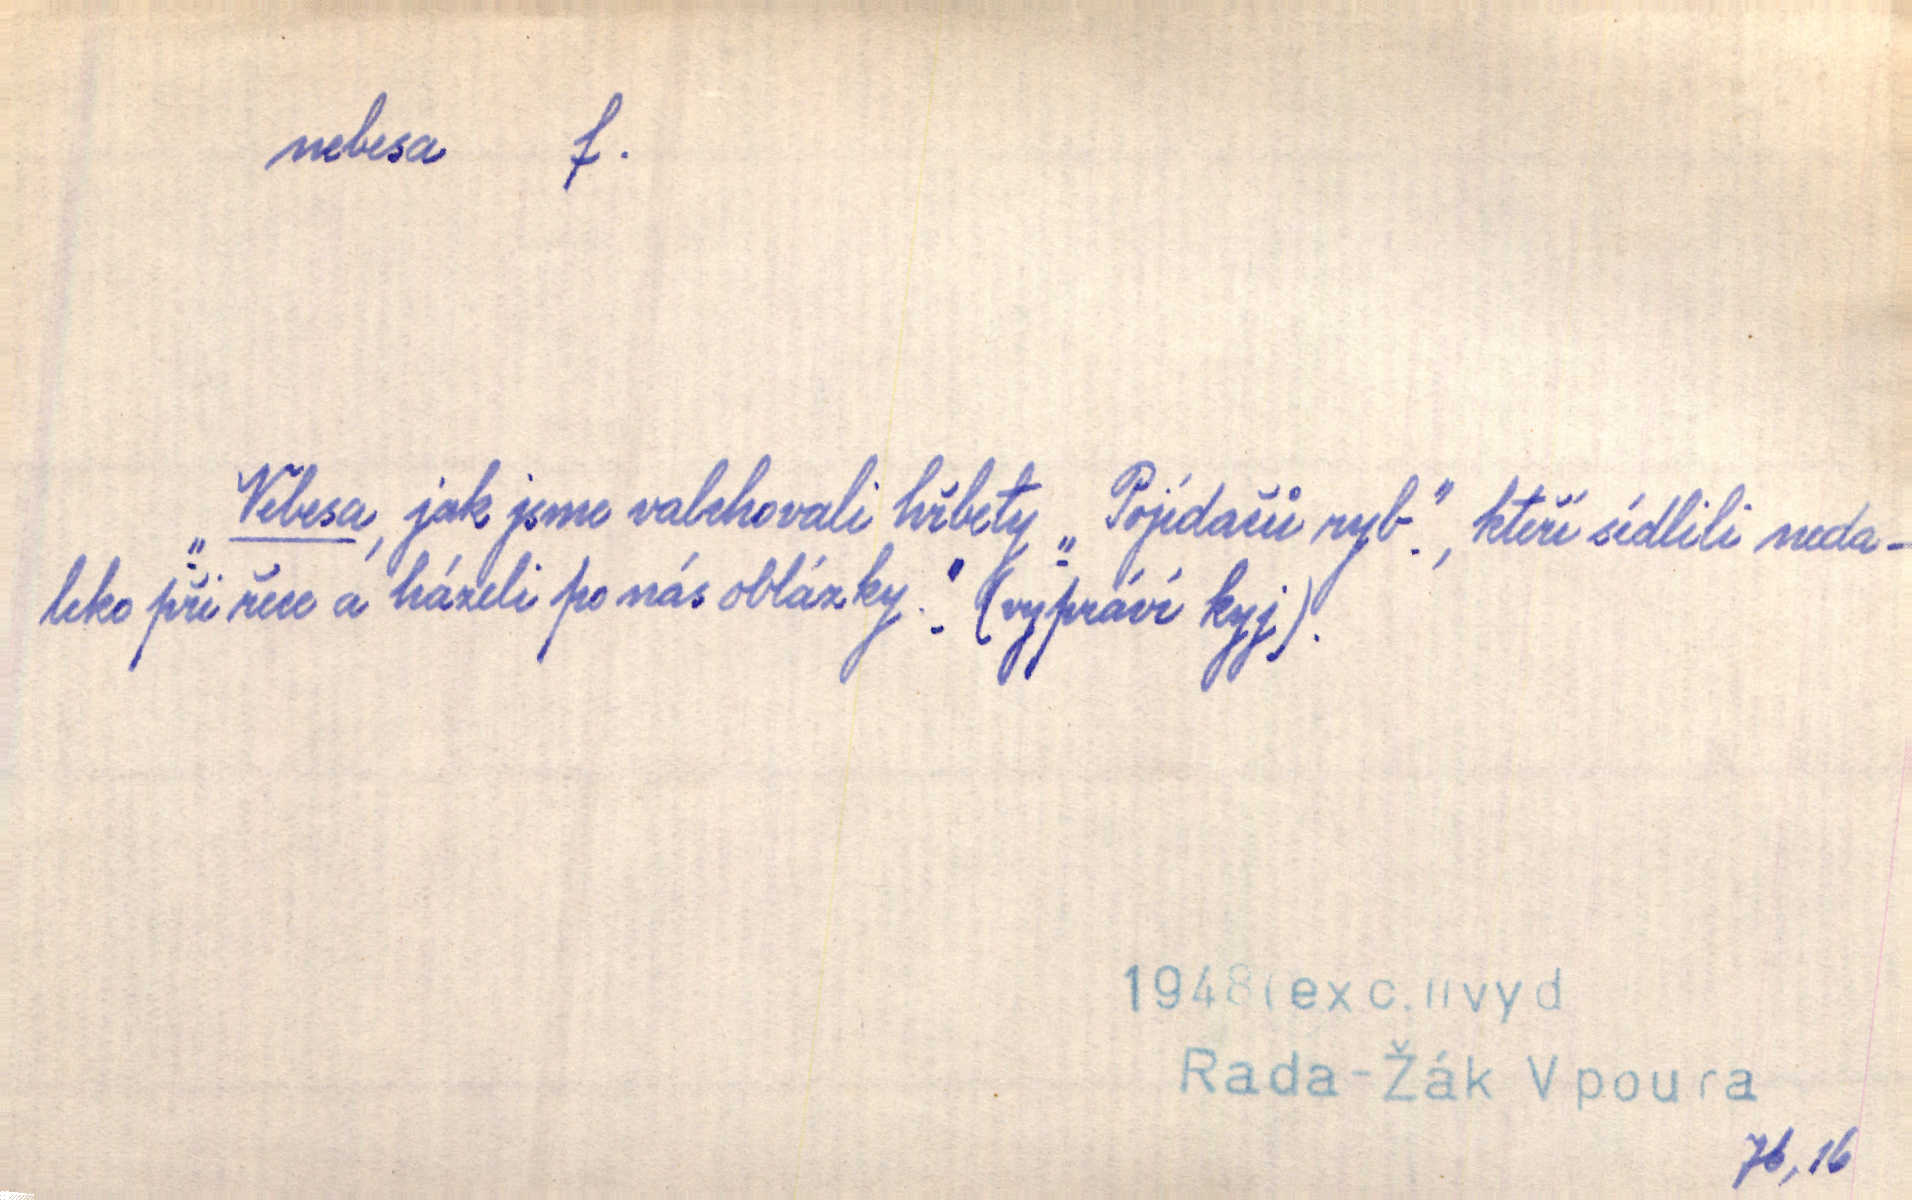 nebesa f.
„Nebesa, jak jsme valchovali hřbety „Pojídačů ryb“, kteří sídlili neda-
leko při řece a házeli po nás oblázky.“ (vypráví kyj).
1948(exc. II vyd
Rada-Žák Vpoura
76, 16